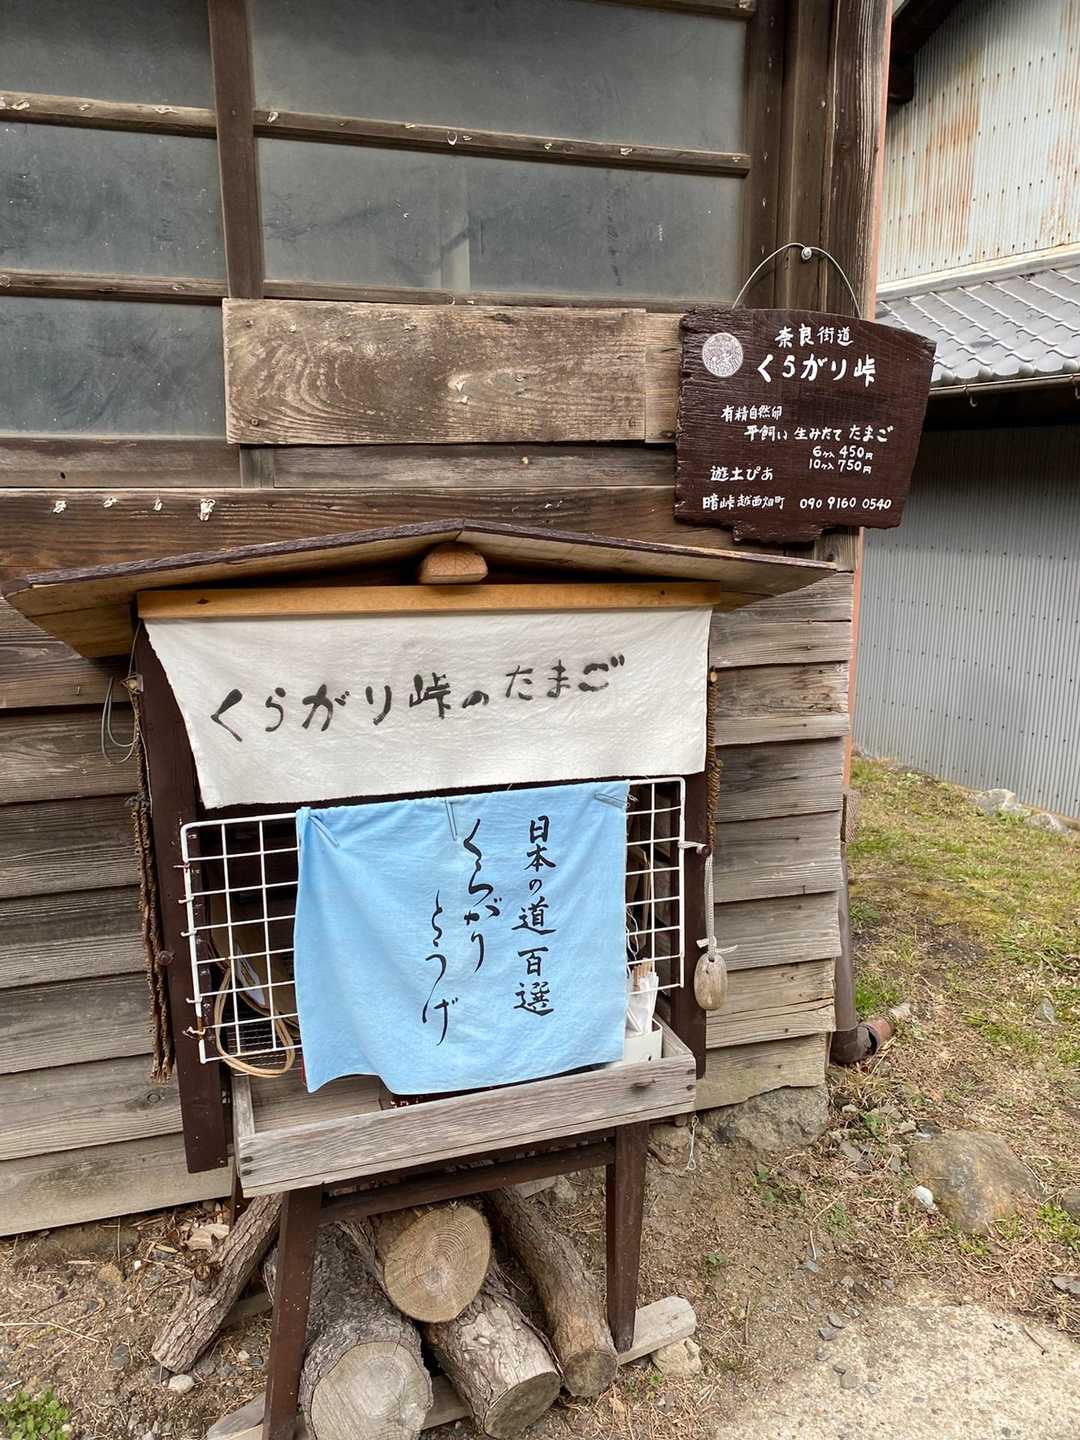 奈良街道
くらがり峠
有精自然卵
平飼い 生みたて たまご
6ヶ入 450円
10ヶ入 750円
遊土ぴあ
暗峠越西畑町 090 9160 0540
くらがり峠のたまご
日本の道百選
くらがり
とうげ